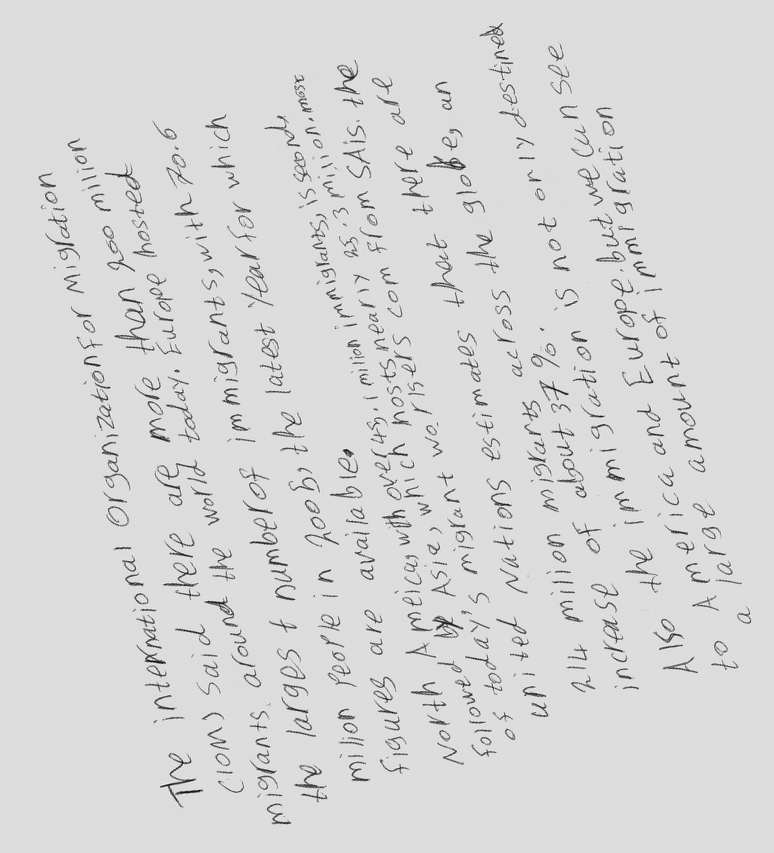 The international Organization For Migration
(IOM) said there are more than 200 milion
migrants around the world today. Europe hosted
the larges t number of immigrants, with 70.6
milion people in 2006, the latest year for which
figures are available.
North Ameicas with over 45.1 milion immigrants, is second,
followed by Asia, which hosts nearly 25.3 million. most
of today's migrant wo.risers com from SAis. the
united Nations estimates that there are
214 million migrants across the globe, an
increase of about 37%.
Also the immigration is not only destined
to America and Europe. but we can see
a large amount of immigration